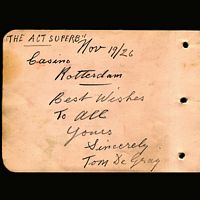 THE ACT SUPERB"
Nov 19/26
Casino
Rotterdam
Best Wishes
To All
Yours
Sincerely
Tom De Gray